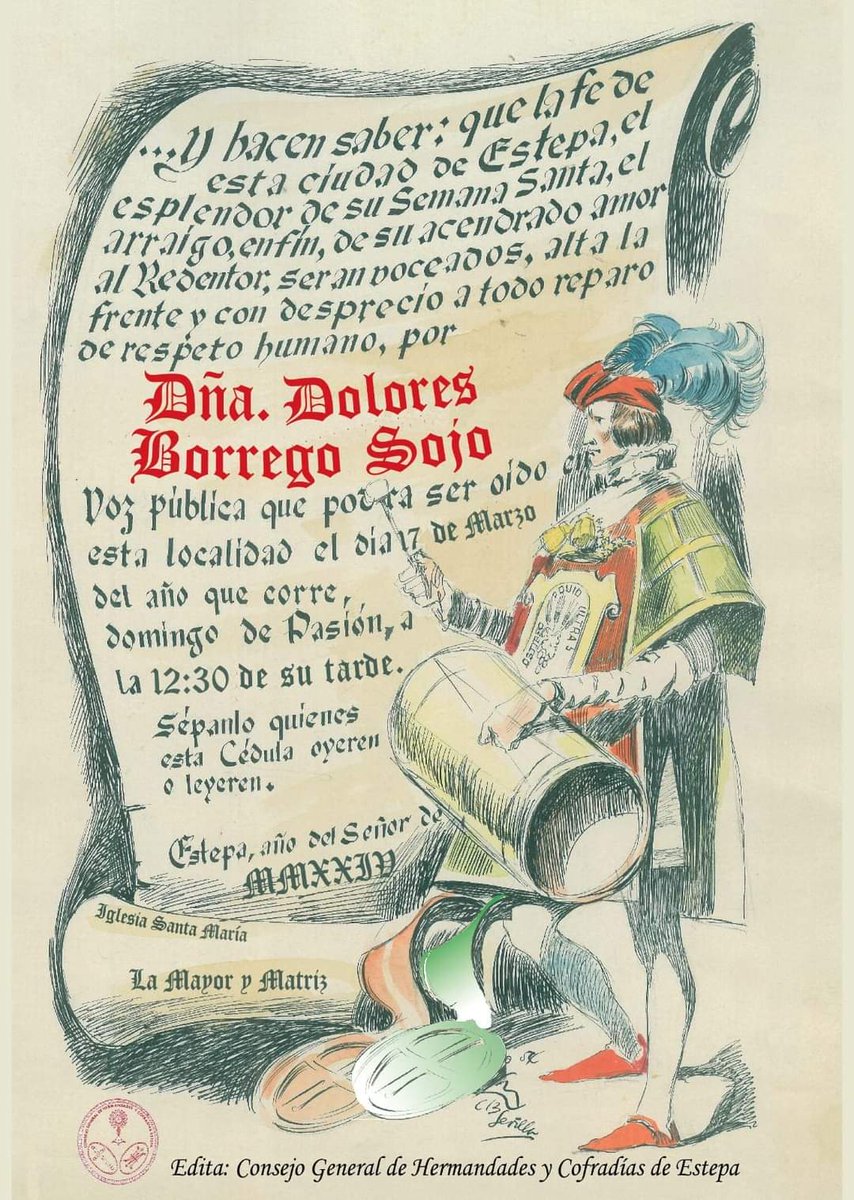 ...Y hacen saber: que la fe de
esta ciudad de Estepa, el
esplendor de su Semana Santa, el
arraigo, enfín, de su acendrado amor
al Redentor, seran voceados, alta la
frente y con desprecio a todo reparo
de respeto humano, por
Dña. Dolores
Borrego Sojo
Voz pública que podra ser oido en
esta localidad el día 17 de Marzo
del año que corre,
domingo de Pasión, a
la 12:30 de su tarde.
Sépanlo quienes
esta Cédula oyeren
o leyeren.
Estepa, año del Señor de
MMXXIV
Iglesia Santa María
La Mayor y Matriz
QUID ULTRA
Sevilla
Edita: Consejo General de Hermandades y Cofradías de Estepa